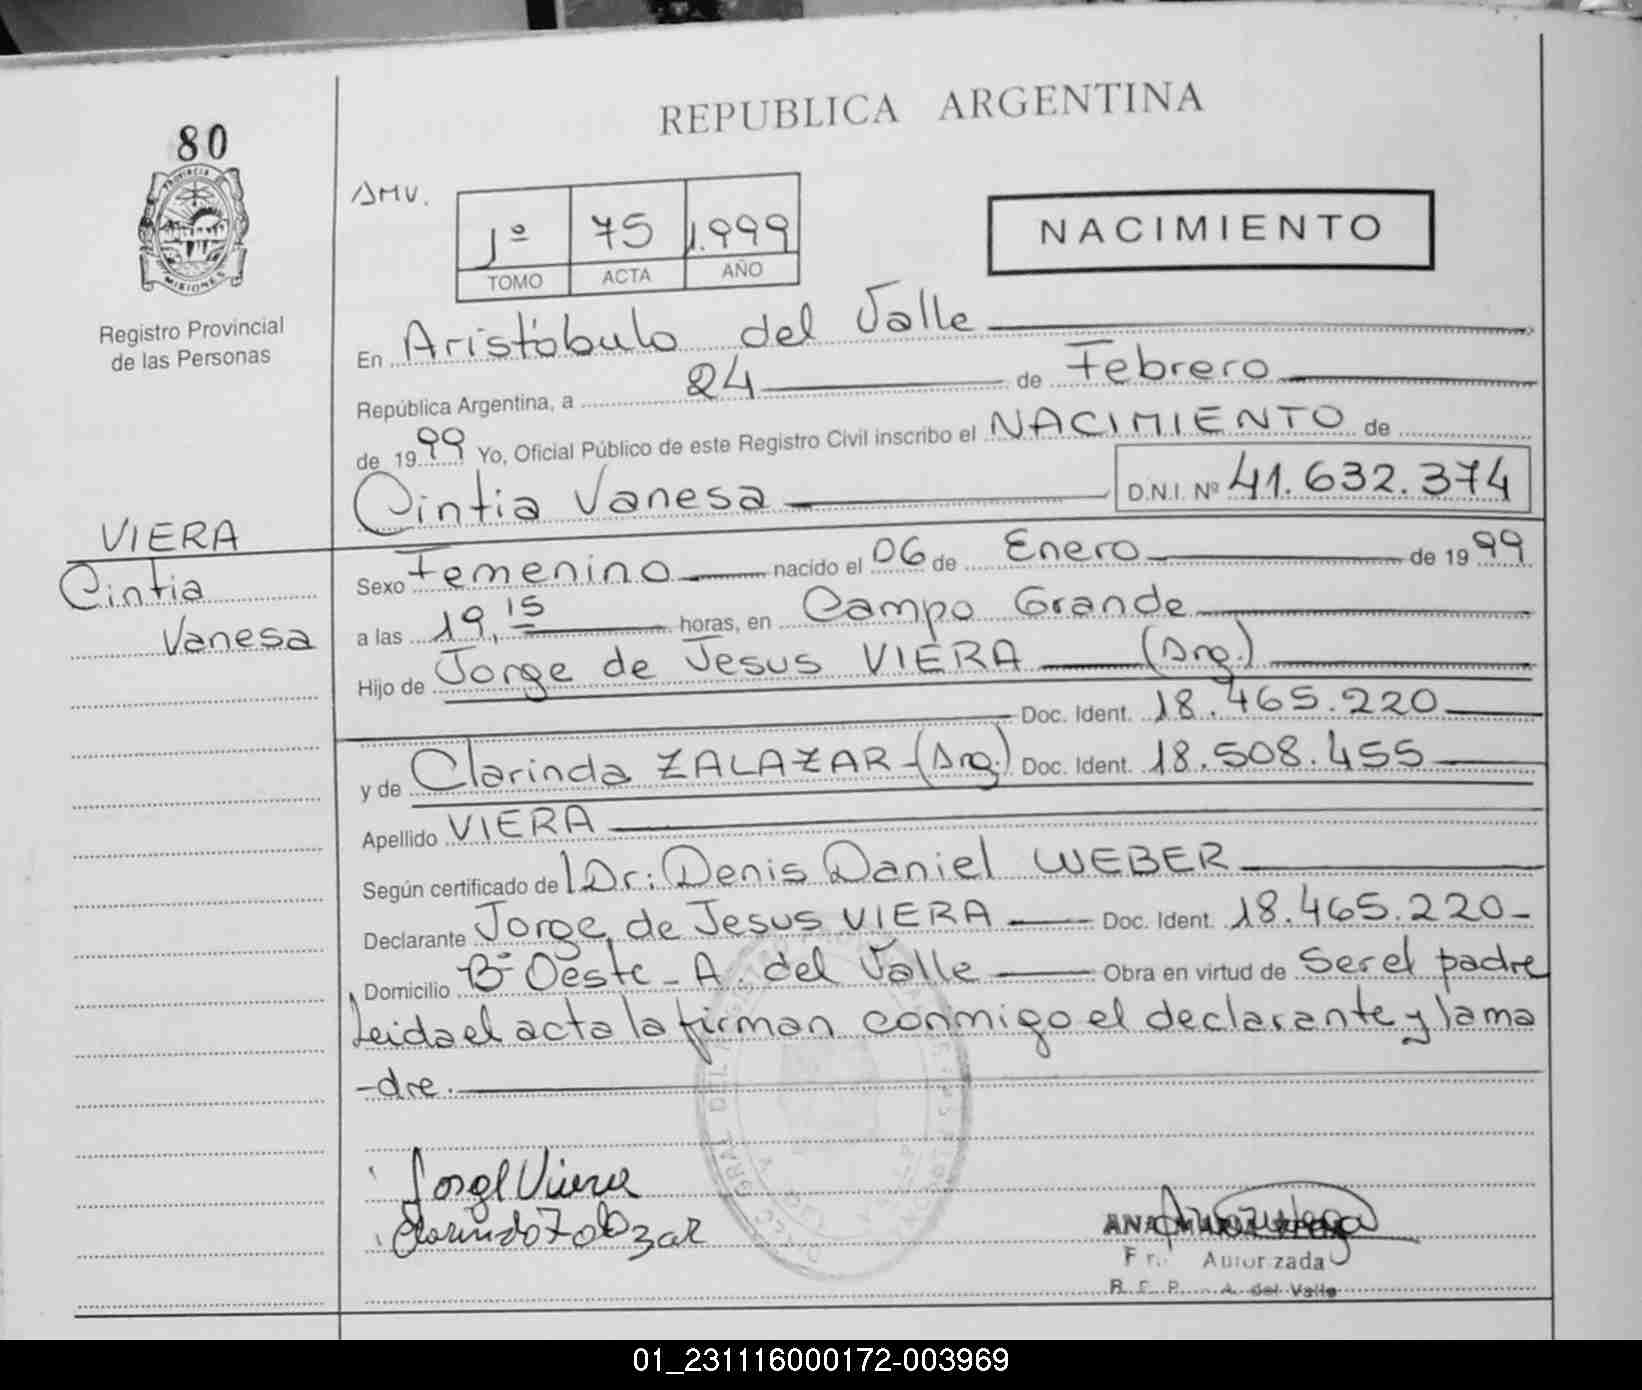 REPUBLICA ARGENTINA
80
PROVINCIA
MISIONES
Registro Provincial
de las Personas
AMV.
1º 75 1.999
TOMO ACTA AÑO
NACIMIENTO
En Aristóbulo del Valle
República Argentina, a 24 de Febrero
de 1999 Yo, Oficial Público de este Registro Civil inscribo el NACIMIENTO de
Cintia Vanesa D.N.I. Nº 41.632.374
VIERA
Cintia
Vanesa
Sexo Femenino nacido el 06 de Enero de 1999
a las 19,15 horas, en Campo Grande
Hijo de Jorge de Jesus VIERA (Arg.)
Doc. Ident. 18.465.220
y de Clarinda ZALAZAR - (Arg.) Doc. Ident. 18.508.455
Apellido VIERA
Según certificado de l Dr: Denis Daniel WEBER
Declarante Jorge de Jesus VIERA Doc. Ident. 18.465.220-
Domicilio Bº Oeste - A. del Valle Obra en virtud de Ser el padre
Leida el acta la firman conmigo el declarante y la ma
-dre.
Jorge Viera
Clarinda Zalazar
ANA MARIA
Autorizada
R. E. P. A. del Valle
01_231116000172-003969